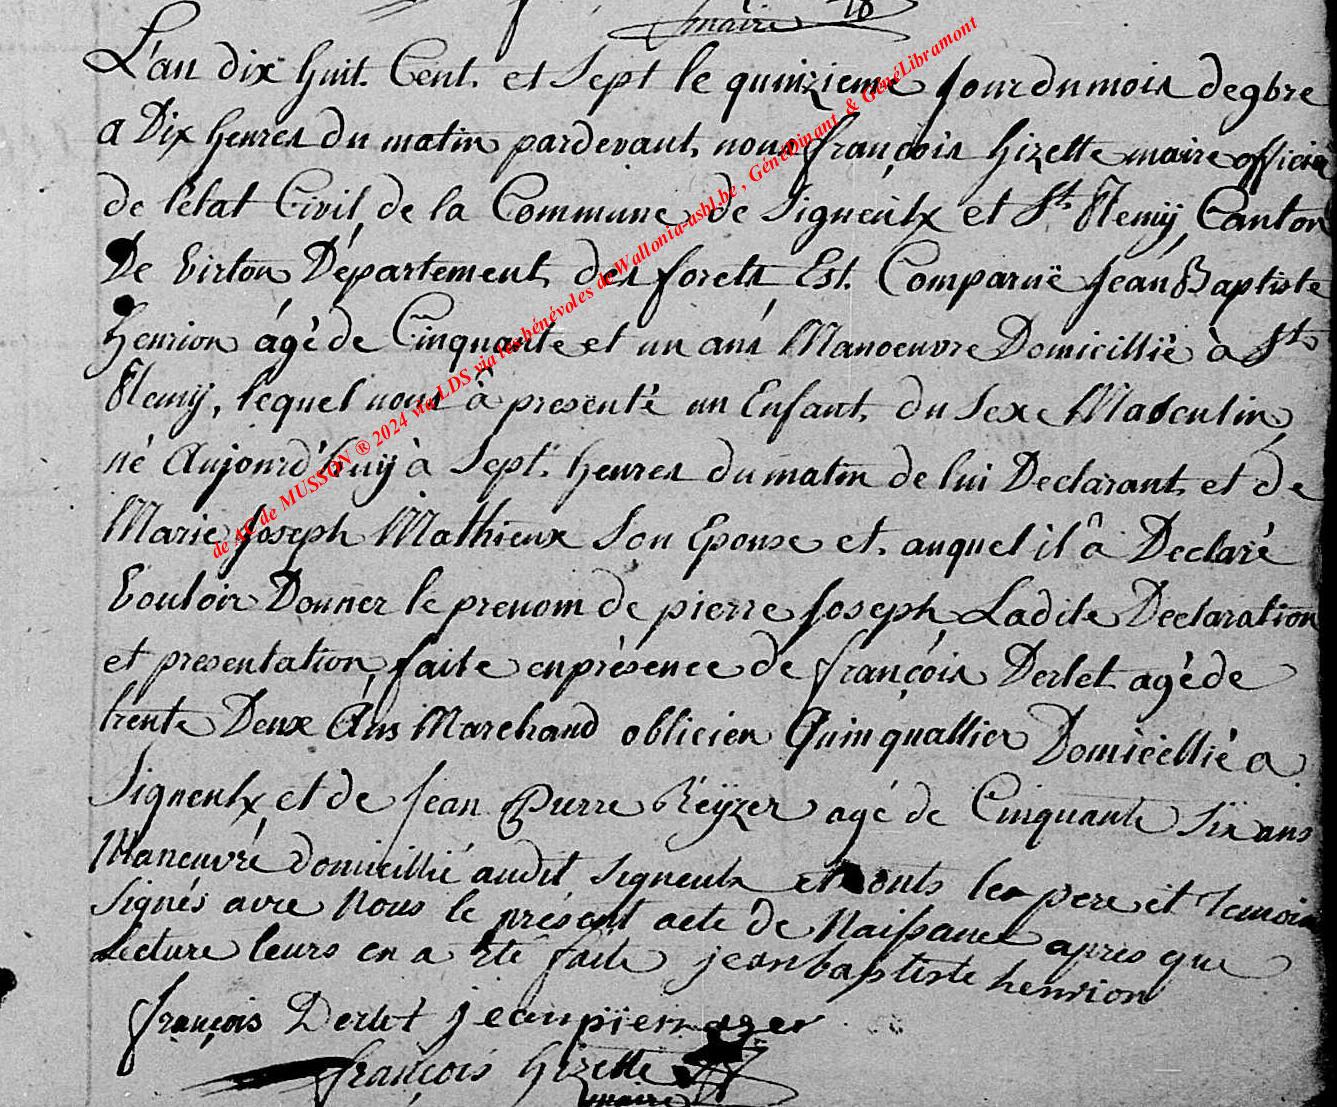 maire
L'an dix huit Cent et Sept le quinzieme jour du mois de 9bre
a Dix heures du matin pardevant nous françois Gizette maire officier
de l'état Civil de la Commune de Signeulx et St. Remÿ Canton
De Virton Département des forets Est Comparuë Jean Baptiste
henrion ágé de Cinquante et un ans Manoeuvre Domicillié à St
Remÿ, lequel nous à presenté un Enfant du Sexe Masculin
né Aujourd'huÿ à Sept heures du matin de lui Declarant et de
Marie Joseph Mathieux Son Epouse et auquel il â Declaré
Vouloir Donner le prenom de pierre Joseph Ladite Declaration
et presentation faite en présence de françois Derlet agé de
trente Deux Ans Marchand oblicien Quinquallier Domicillié a
Signeulx et de Jean Pierre Reÿzer agé de Cinquante Six ans
Maneuvré domicillié audit Signeulx et onts les pere et temoins
Signés avec Nous le présent acte de Naissance apres que
Lecture leurs en a été faite jean baptiste henrion
françois Derlet jean pierr
françois Gizette
maire
de AC de MUSSON ® 2024 via LDS via les bénévoles de Wallonia-asbl.be , GénéDinant & GénéLibramont